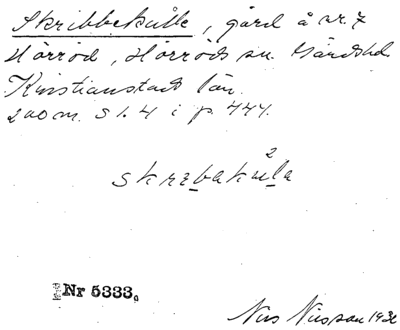 Skribbekulle, gård å nr. 7
Hörröd, Hörröds sn. Gärds hd.
Kristianstads län.
200 m. S 1.4 i p. 444.
2
skrebakula
Nr 5333.
Nils Nilsson 1932